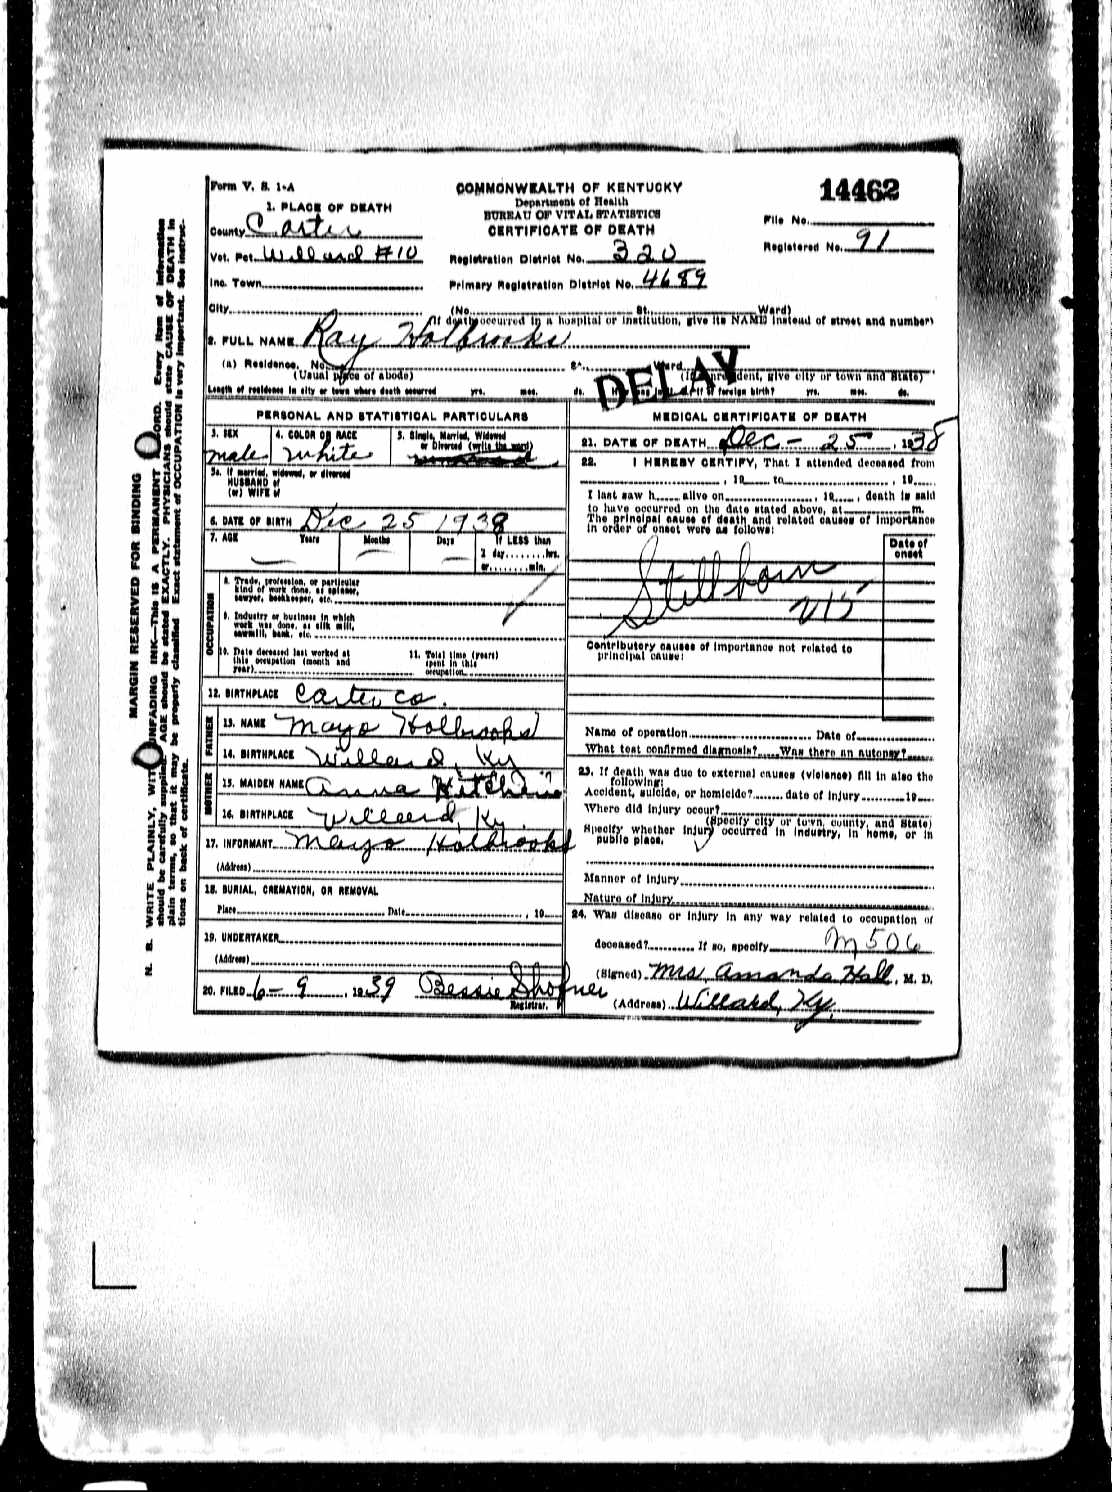 Form V. S. 1-A
COMMONWEALTH OF KENTUCKY
Department of Health
BUREAU OF VITAL STATISTICS
CERTIFICATE OF DEATH
14462
File No.
Registered No. 91
1. PLACE OF DEATH
County Carter
Vot. Pct. Willard #10
Registration District No. 320
Inc. Town
Primary Registration District No. 4689
City (No. St. Ward)
(If death occurred in a hospital or institution, give its NAME instead of street and number)
2. FULL NAME Ray Holbrooks
(a) Residence. No. St. Ward
(Usual place of abode) (If nonresident, give city or town and State)
DELAY
Length of residence in city or town where death occurred yrs. mos. ds. if of foreign birth? yrs. mos. ds.
PERSONAL AND STATISTICAL PARTICULARS
3. SEX male
4. COLOR OR RACE White
5. Single, Married, Widowed
or Divorced (write the word)
5a. If married, widowed, or divorced
HUSBAND of
(or) WIFE of
6. DATE OF BIRTH Dec 25 1938
7. AGE Years Months Days If LESS than
1 day hrs.
or min.
OCCUPATION
8. Trade, profession, or particular
kind of work done, as spinner,
sawyer, bookkeeper, etc.
9. Industry or business in which
work was done, as silk mill,
sawmill, bank, etc.
10. Date deceased last worked at
this occupation (month and
year)
11. Total time (years)
spent in this
occupation
12. BIRTHPLACE Carter Co.
FATHER
13. NAME Mayo Holbrooks
14. BIRTHPLACE Willard, Ky
MOTHER
15. MAIDEN NAME Anna
16. BIRTHPLACE Willard, Ky.
17. INFORMANT Mayo Holbrooks
(Address)
18. BURIAL, CREMATION, OR REMOVAL
Place Date , 19
19. UNDERTAKER
(Address)
20. FILED 6-9, 1939 Bessie Shofner
Registrar.
MEDICAL CERTIFICATE OF DEATH
21. DATE OF DEATH Dec- 25, 1938
22. I HEREBY CERTIFY, That I attended deceased from
, 19 to , 19
I last saw h alive on , 19 , death is said
to have occurred on the date stated above, at m.
The principal cause of death and related causes of importance
in order of onset were as follows:
Date of
onset
Stillborn
Contributory causes of importance not related to
principal cause:
Name of operation Date of
What test confirmed diagnosis? Was there an autopsy?
23. If death was due to external causes (violence) fill in also the
following:
Accident, suicide, or homicide? date of injury 19
Where did injury occur?
(Specify city or town, county, and State)
Specify whether injury occurred in industry, in home, or in
public place.
Manner of injury
Nature of injury
24. Was disease or injury in any way related to occupation of
deceased? If so, specify M506
(Signed) Mrs. Amanda Hall, M. D.
(Address) Willard, Ky.
MARGIN RESERVED FOR BINDING
N. B. WRITE PLAINLY, WITH UNFADING INK—This IS A PERMANENT RECORD. Every item of information
should be carefully supplied. AGE should be stated EXACTLY. PHYSICIANS should state CAUSE OF DEATH in
plain terms, so that it may be properly classified. Exact statement of OCCUPATION is very important. See instruc-
tions on back of certificate.